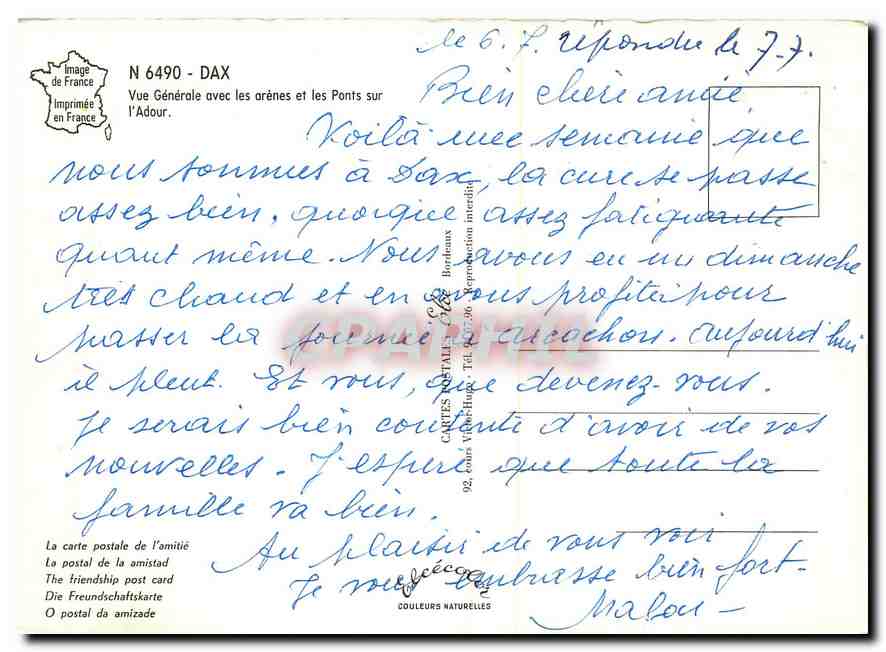 le 6.7. répondu le 7-7.
Image
de France
Imprimée
en France
N 6490 - DAX
Vue Générale avec les arènes et les Ponts sur
l'Adour.
Bien chère amie,
Voilà une semaine que
nous sommes à Dax, la cure se passe
assez bien, quoique assez fatiguante
quant même. Nous avons eu un dimanche
très chaud et en avons profiter pour
passer la journée à arcachon. aujourd'hui
il pleut. Et vous, que devenez-vous.
Je serais bien contente d'avoir de vos
nouvelles. J'espère que toute la
famille va bien.
Au plaisir de vous voir
Je vous embrasse bien fort-
CARTES POSTALES Elcé Bordeaux
92, cours Victor-Hugo - Tél. Reproduction interdite
CPARPHIL
La carte postale de l'amitié
La postal de la amistad
The friendship post card
Die Freundschaftskarte
O postal da amizade
COULEURS NATURELLES